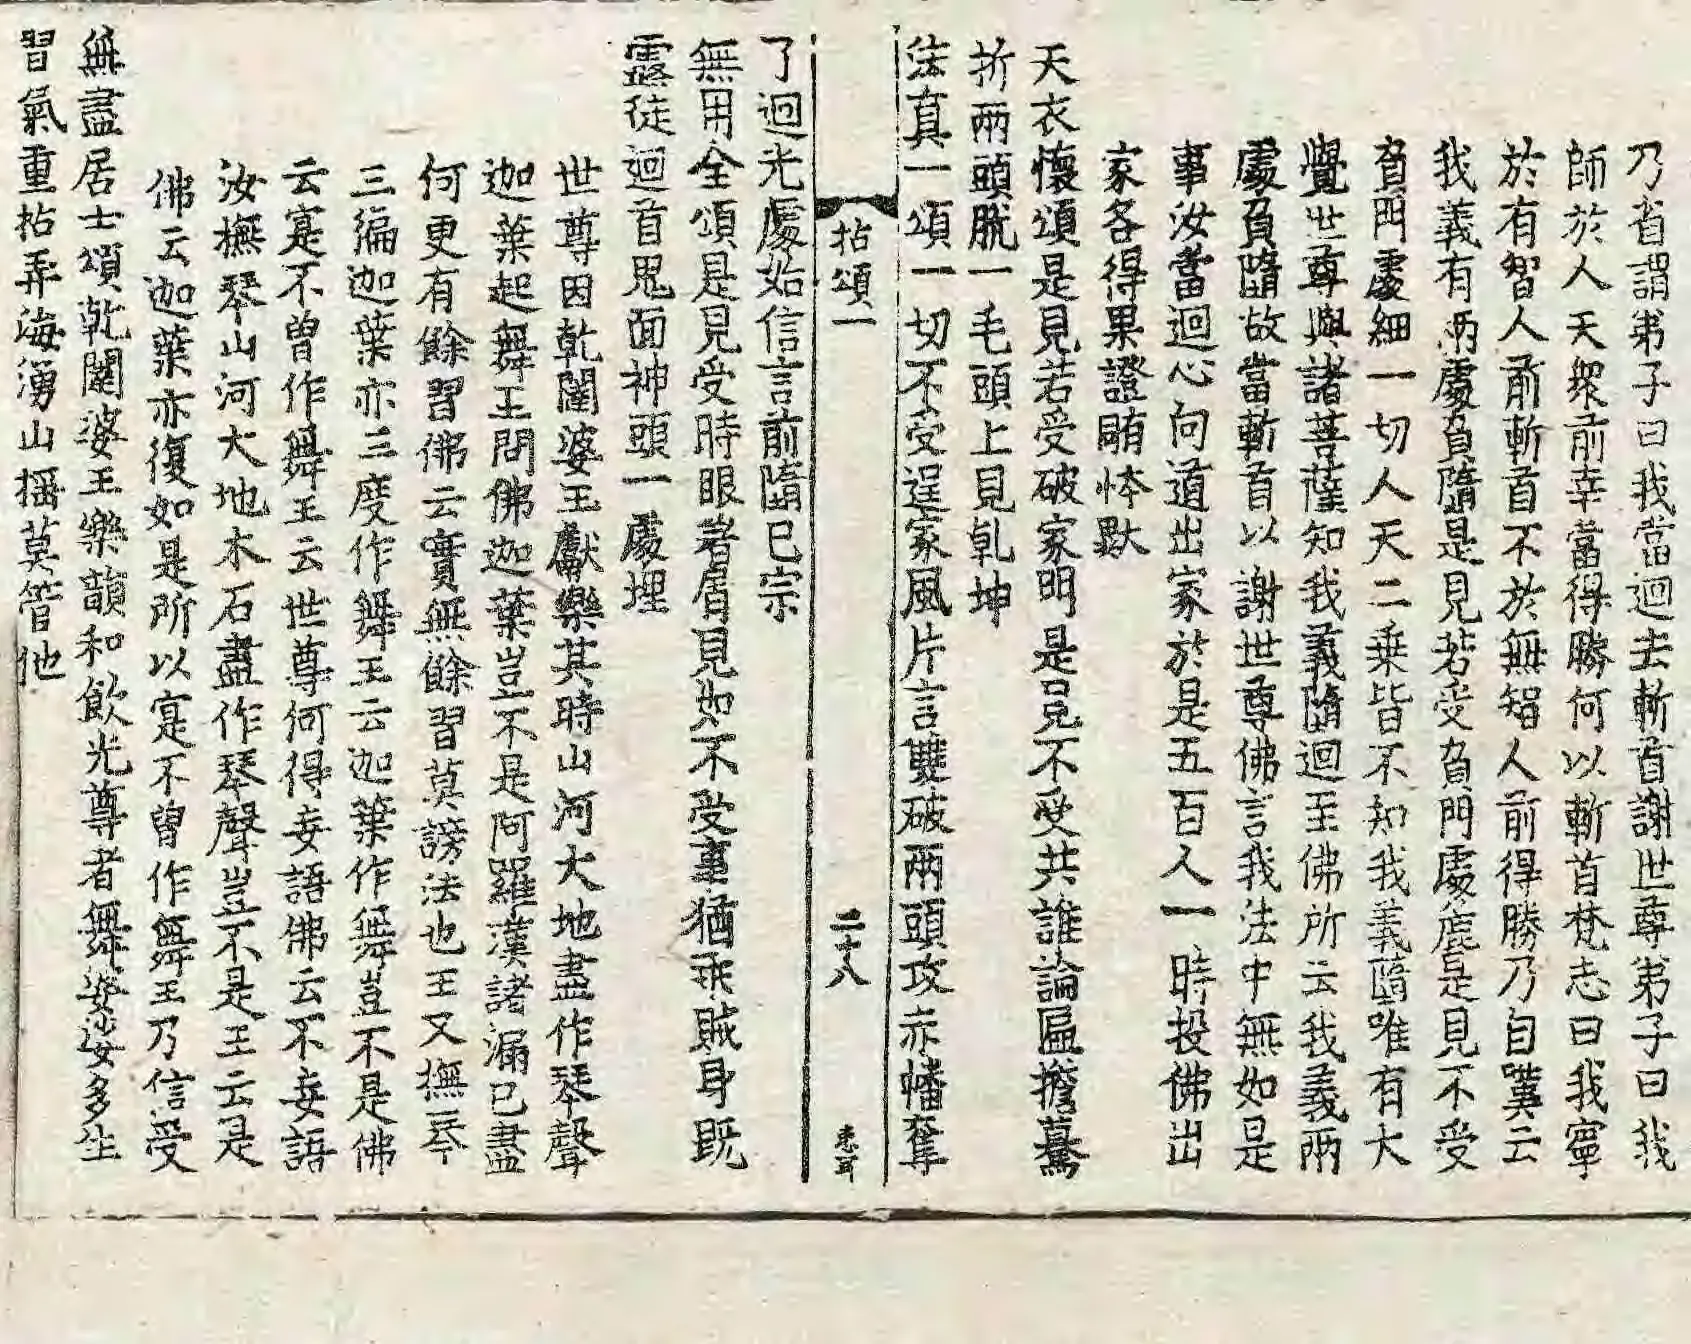 乃省謂弟子曰我當迴去斬首謝世尊弟子曰我
師於人天衆前幸當得勝何以斬首梵志曰我寧
於有智人前斬首不於無智人前得勝乃自嘆云
我義有兩處負墮是見若受負門處麁是見不受
負門處細一切人天二乗皆不知我義墮唯有大
覺世尊與諸菩薩知我義墮迴至佛所云我義兩
處負墮故當斬首以謝世尊佛言我法中無如是
事汝當迴心向道出家於是五百人一時投佛出
家各得果證
天衣懷頌是見若受破家明是見不受共誰論匾擔驀
折兩頭脫一毛頭上見乹坤
法真一頌一切不受逞家風片言雙破兩頭攻赤幡奪
拈頌一
二十八
了迴光處始信言前墮已宗
無用全頌是見受時眼著屑見如不受事猶乖賊身既
露徒迴首鬼面神頭一處埋
世尊因乾闥婆王獻樂其時山河大地盡作琴聲
迦葉起舞王問佛迦葉豈不是阿羅漢諸漏已盡
何更有餘習佛云實無餘習莫謗法也王又撫琴
三徧迦葉亦三度作舞王云迦葉作舞豈不是佛
云寔不曾作舞王云世尊何得妄語佛云不妄語
汝撫琴山河大地木石盡作琴聲豈不是王云是
佛云迦葉亦復如是所以寔不曾作舞王乃信受
無盡居士頌乾闥婆王樂韻和飲光尊者舞婆娑多生
習氣重拈弄海湧山搖莫管他